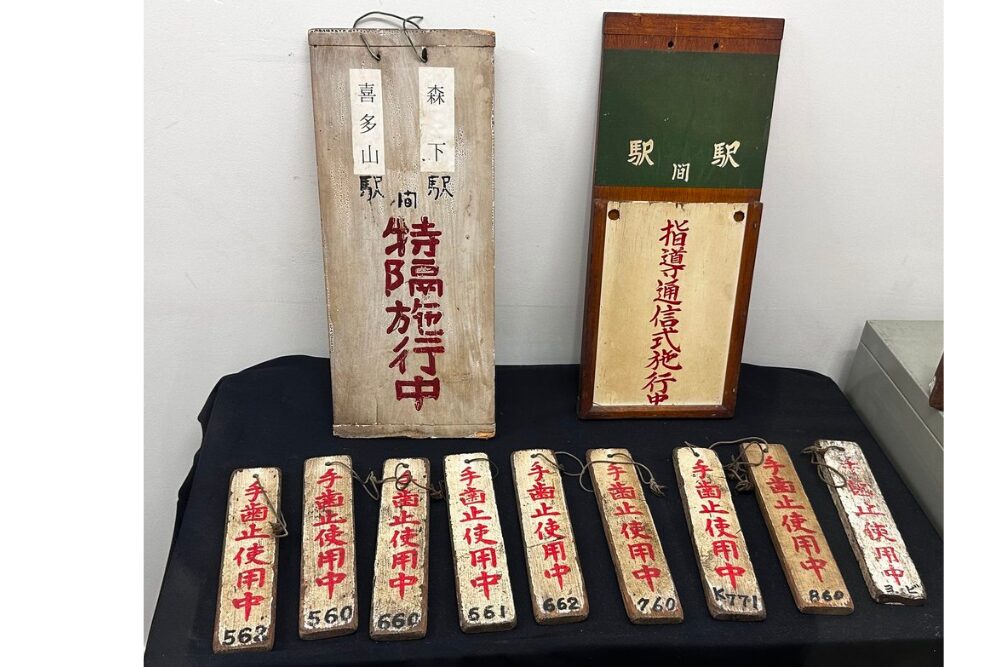 森下駅
喜多山駅
間
特隔施行中
駅
駅
間
指導通信式施行中
手歯止使用中
562
手歯止使用中
560
手歯止使用中
660
手歯止使用中
661
手歯止使用中
662
手歯止使用中
760
手歯止使用中
K771
手歯止使用中
860
手歯止使用中
ヨビ